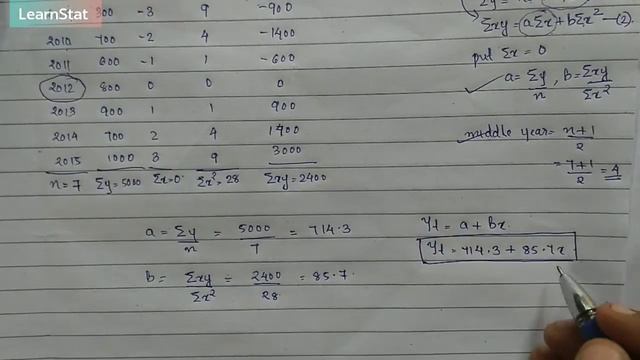 LearnStat
300 -3 9 -900
2010 700 -2 4 -1400
2011 600 -1 1 -600
2012 800 0 0 0
2013 900 1 1 900
2014 700 2 4 1400
2015 1000 3 9 3000
n=7 Σy=5000 Σx=0 Σx²=28 Σxy=2400
Σxy = aΣx + bΣx² -(2).
put Σx = 0
a= Σy/n , b= Σxy/Σx²
middle year = n+1/2
= 7+1/2 = 4
a = Σy/n = 5000/7 = 714.3
b= Σxy/Σx² = 2400/28 = 85.7.
Yt = a + bx.
Yt = 714.3 + 85.7x